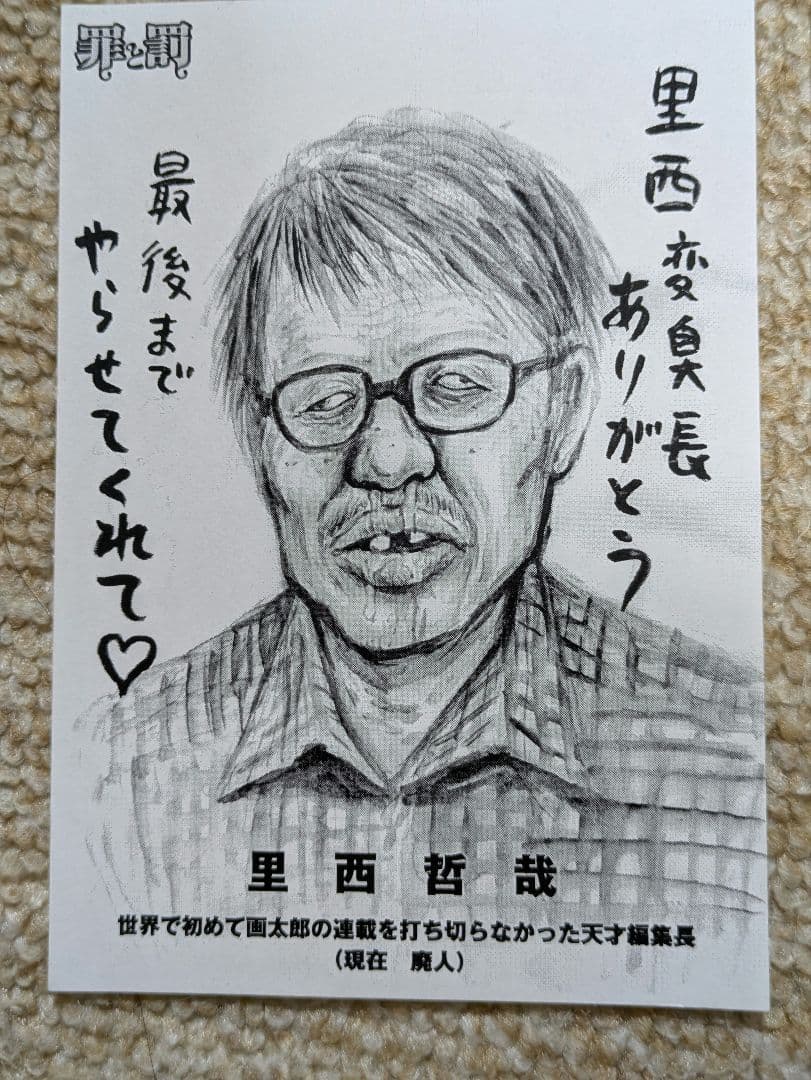 罪と罰
里西変臭長
ありがとう
最後まで
やらせてくれて♡
里西哲哉
世界で初めて画太郎の連載を打ち切らなかった天才編集長
（現在　廃人）